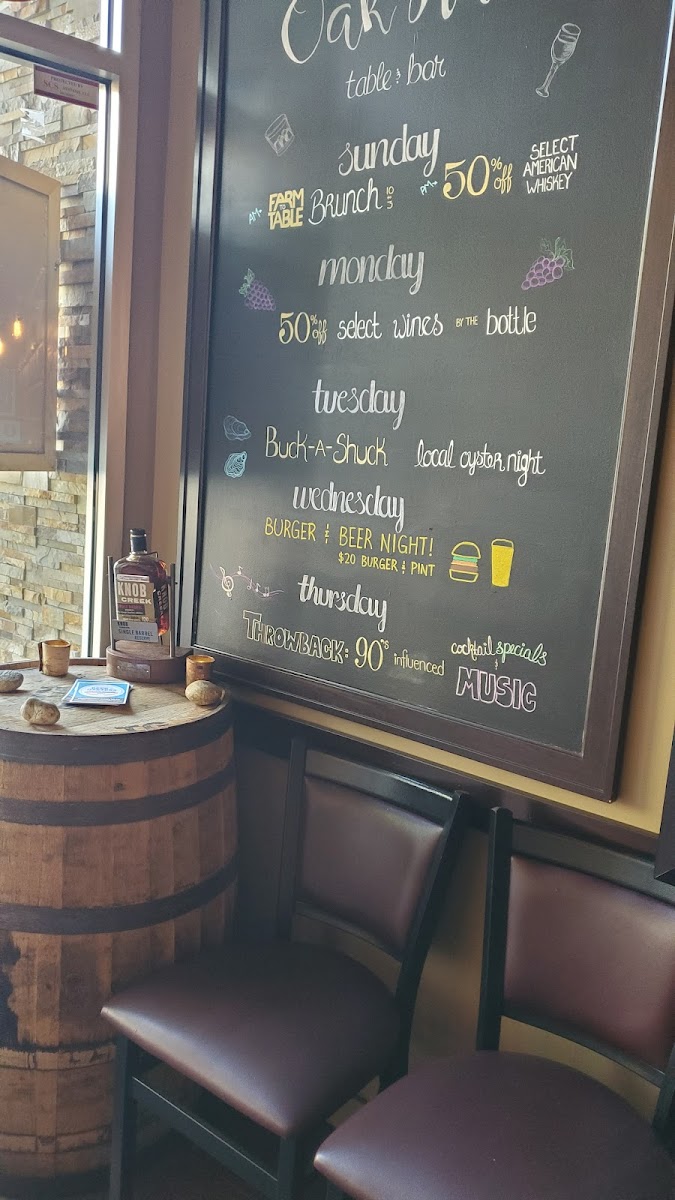 Oak
table & bar
sunday
AM- FARM TO TABLE Brunch PM- 50% off SELECT AMERICAN WHISKEY
monday
50% off select wines BY THE bottle
tuesday
Buck-A-Shuck local oyster night
wednesday
BURGER & BEER NIGHT!
$20 BURGER & PINT
thursday
THROWBACK: 90's influenced cocktail specials & MUSIC
KNOB
CREEK
SINGLE BARREL